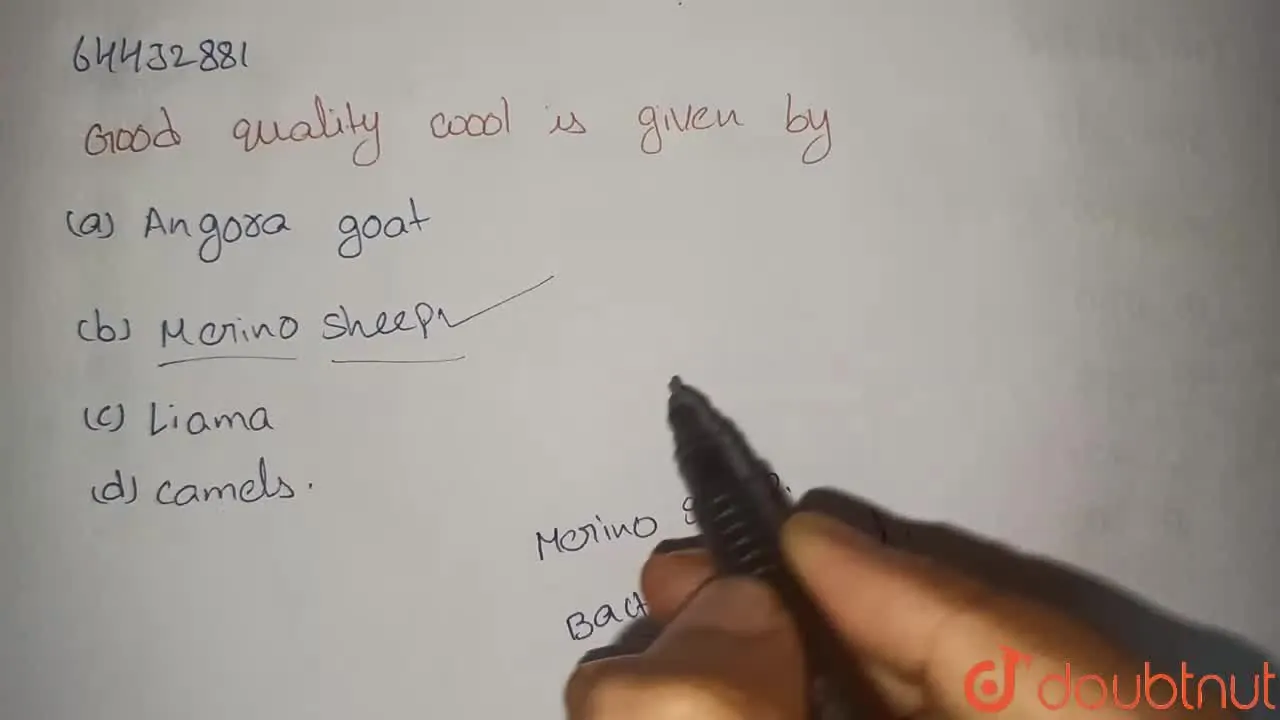 64432881
Good quality wool is given by
(a) Angora goat
(b) Merino sheep
(c) Liama
(d) camels.
Merino
doubtnut